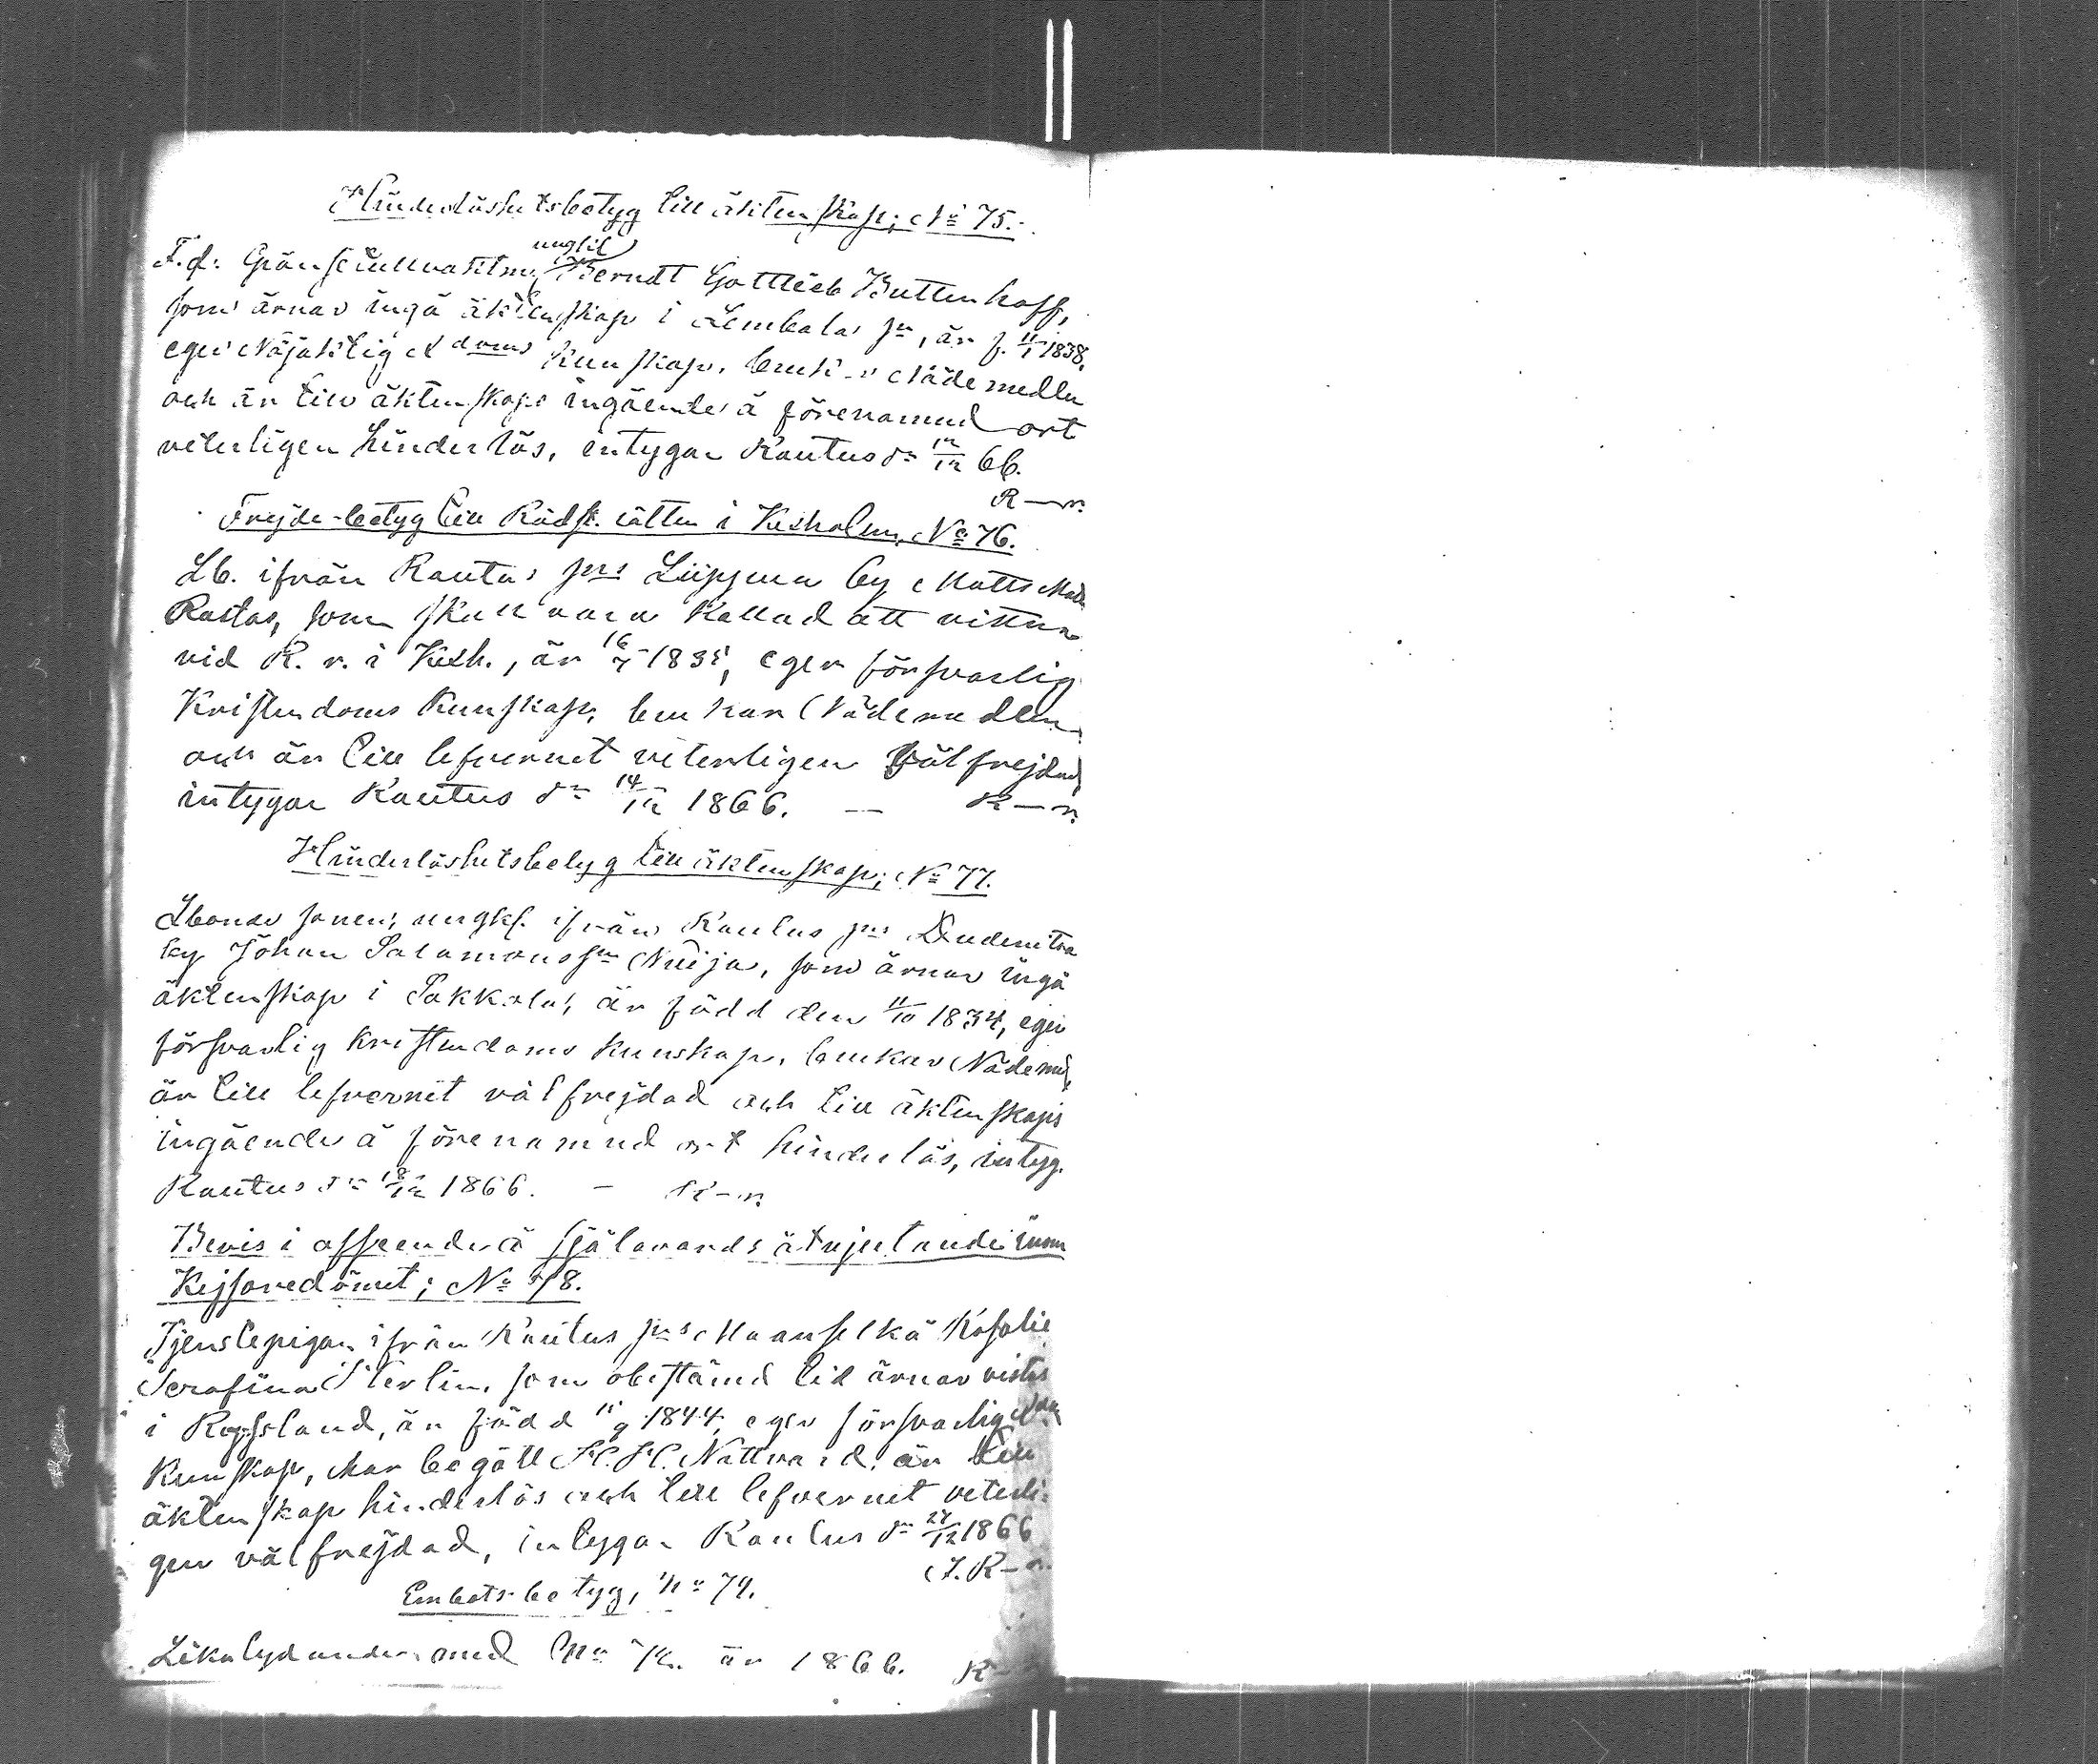 Hinderlöshetsbetyg till äktenskap; No 75.
ungkl
F. d. Gränstullvaktm. Berndt Gottlieb Buttenhoff,
som ärnar ingå äktenskap i Lembala sn, är f. 11/1 1838,
eger Nöjaktig Xdoms Kunskap, bruk-r Nådemedlen
och är till äktenskaps ingående å förenamnd ort
veterligen hinderlös, intygar Rautus dn 12/12 66.
R—n.
Frejde-betyg till Rådst. rätten i Kexholm, No 76.
Lb. ifrån Rautus sns Liippua by Matts Matts
Rastas, som skall vara Kallad att vittna
vid R. r. i Kexh., är 16/7 183, eger försvarlig
Kristendoms Kunskap, brukar Nådemedlen
och är till lefvernet veterligen Välfrejdad,
intygar Rautus dn 14/12 1866. — R—n.
Hinderlöshetsbetyg till äktenskap; No 77.
Lbonde sonen, ungkl. ifrån Rautus sns
by Johan Salamonssn Nuija, som ärnar ingå
äktenskap i Sakkola, är född den 11/10 1834, eger
försvarlig Kristendoms Kunskap, brukar Nådemd,
är till lefvernet välfrejdad och till äktenskaps
ingående å förenamnd ort hinderlös, intyg.
Rautus dn 18/12 1866. — R—n.
Bevis i afseende å själavårds åtnjutande inom
Kejsaredömet; No 78.
Tjenstepigan ifrån Rautus sns Maanselkä Rosalie
Serafina Sterlin, som obestämd tid ärnar vistas
i Ryssland, är född 9 1844, eger försvarlig Xdms
Kunskap, har begått H. H. Nattvard, är till
äktenskap hinderlös och till lefvernet veterli-
gen välfrejdad, intygar Rautus dn 27/12 1866
J. R—n.
Embets-betyg, No 79.
Likalydande med No är 1866. R—n